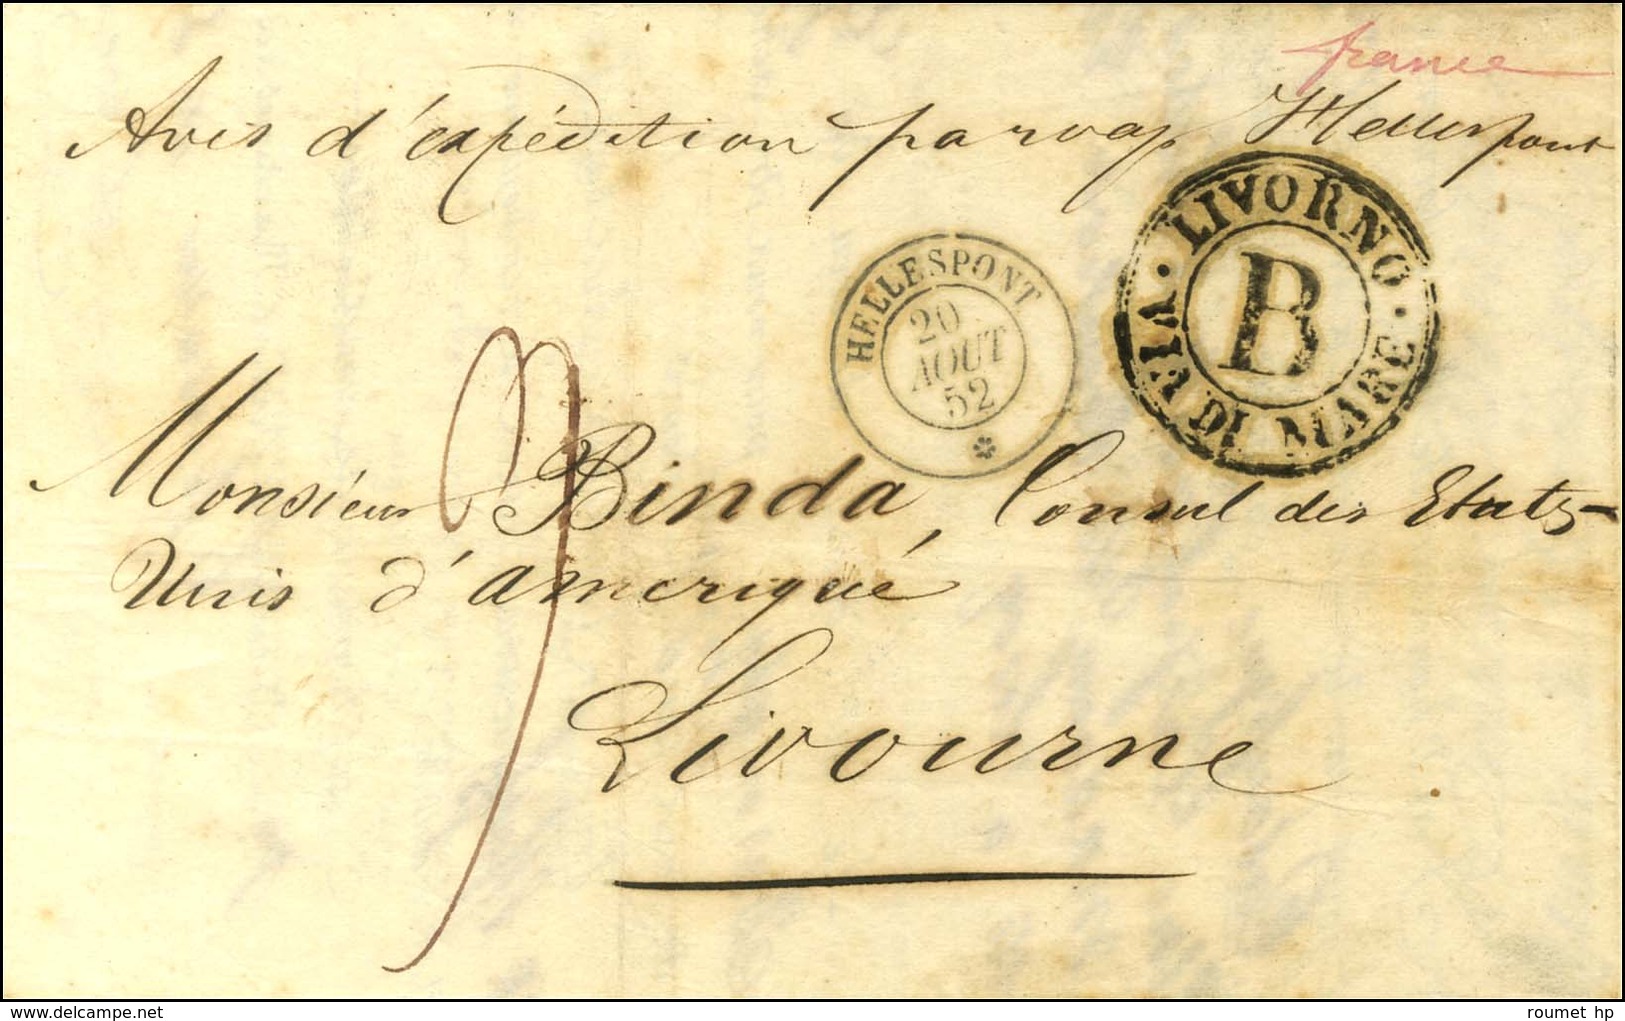 france
Avis d'expédition par vap Hellespont
LIVORNO
B
VIA DI MARE
HELLESPONT
20
AOUT
52
Monsieur Binda, Consul des Etats-
Unis d'amériqué
Livourne
delcampe.net
roumet hp